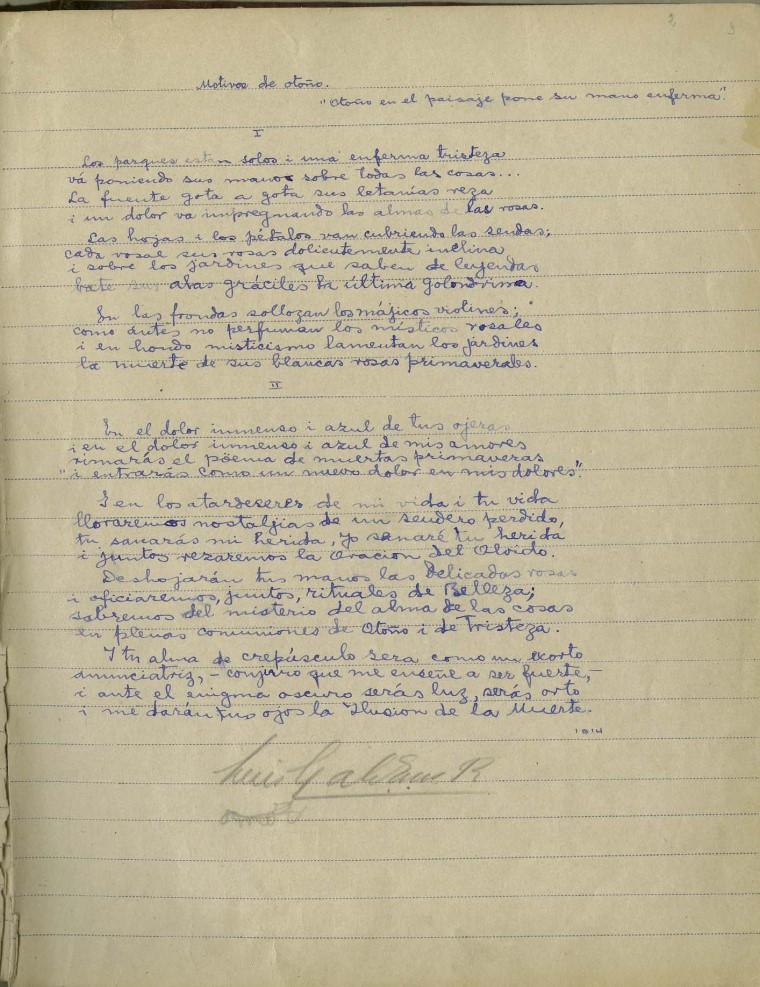 2 3
Motivos de otoño.
"Otoño en el paisaje pone su mano enferma".
I
Los parques estan solos i una enferma tristeza
vá poniendo sus manos sobre todas las cosas...
La fuente gota a gota sus letanías reza
i un dolor va impregnando las almas de las rosas.
Las hojas i los pétalos van cubriendo las sendas;
cada rosal sus rosas dolientemente inclina
i sobre los jardines que saben de leyendas
bate sus alas gráciles la última golondrina.
En las frondas sollozan los májicos violines;
como ántes no perfuman los místicos rosales
i en hondo misticismo lamentan los jardines
la muerte de sus blancas rosas primaverales.
II
En el dolor inmenso i azul de tus ojeras
i en el dolor inmenso i azul de mis amores
rimarás el pöema de muertas primaveras
"i entrarás como un nuevo dolor en mis dolores".
I en los atardeseres de mi vida i tu vida
lloraremos nostaljias de un sendero perdido,
tu sanarás mi herida, yo sanaré tu herida
i juntos rezaremos la Oracion del Olvido.
Deshojarán tus manos las delicadas rosas
i oficiaremos, juntos, rituales de Belleza;
sabremos del misterio del alma de las cosas
en plenas comuniones de Otoño i de Tristeza.
I tu alma de crepúsculo sera como un exorto
anunciatriz, - conjuro que me enseñe a ser fuerte, -
i ante el enigma oscuro serás luz, serás orto
i me darán tus ojos la Ilusion de la Muerte.
1914
Luis